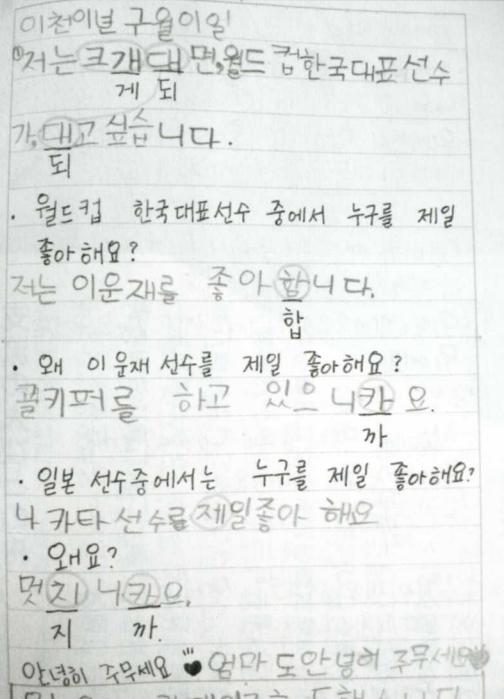 이천이년 구월이일
①저는 크개 대면, 월드 컵 한국대표선수
게 되
가, 대고 싶습니다.
되
· 월드컵 한국대표선수 중에서 누구를 제일
좋아해요?
저는 이운재를 좋아 함니다.
합
· 왜 이운재 선수를 제일 좋아해요?
골키퍼를 하고 있으 니캬 요.
까
· 일본 선수중에서는 누구를 제일 좋아해요?
나카타 선수를 제일좋아 해요
· 왜요?
멋치 니캬요.
지 까.
안녕히 주무세요 엄마 도안녕히 주무세요